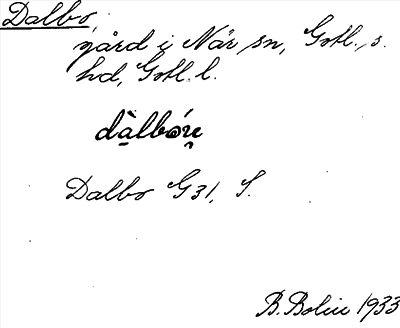 Dalbo,
gård i När sn, Gotl. s.
hd, Gotl. l.
Dalbo G31, S.
B. Bolin 1933